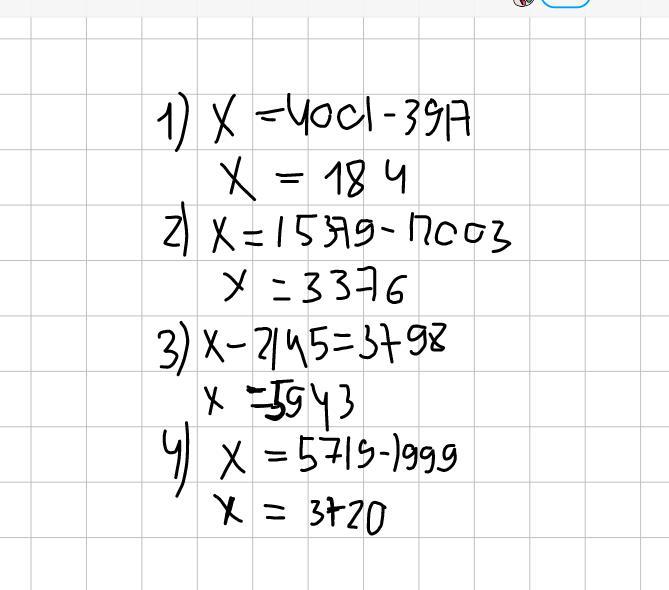 1) x = 4001 - 3917
x = 184
2) x = 15379 - 12003
x = 3376
3) x - 2145 = 3798
x = 5943
4) x = 5719 - 1999
x = 3720